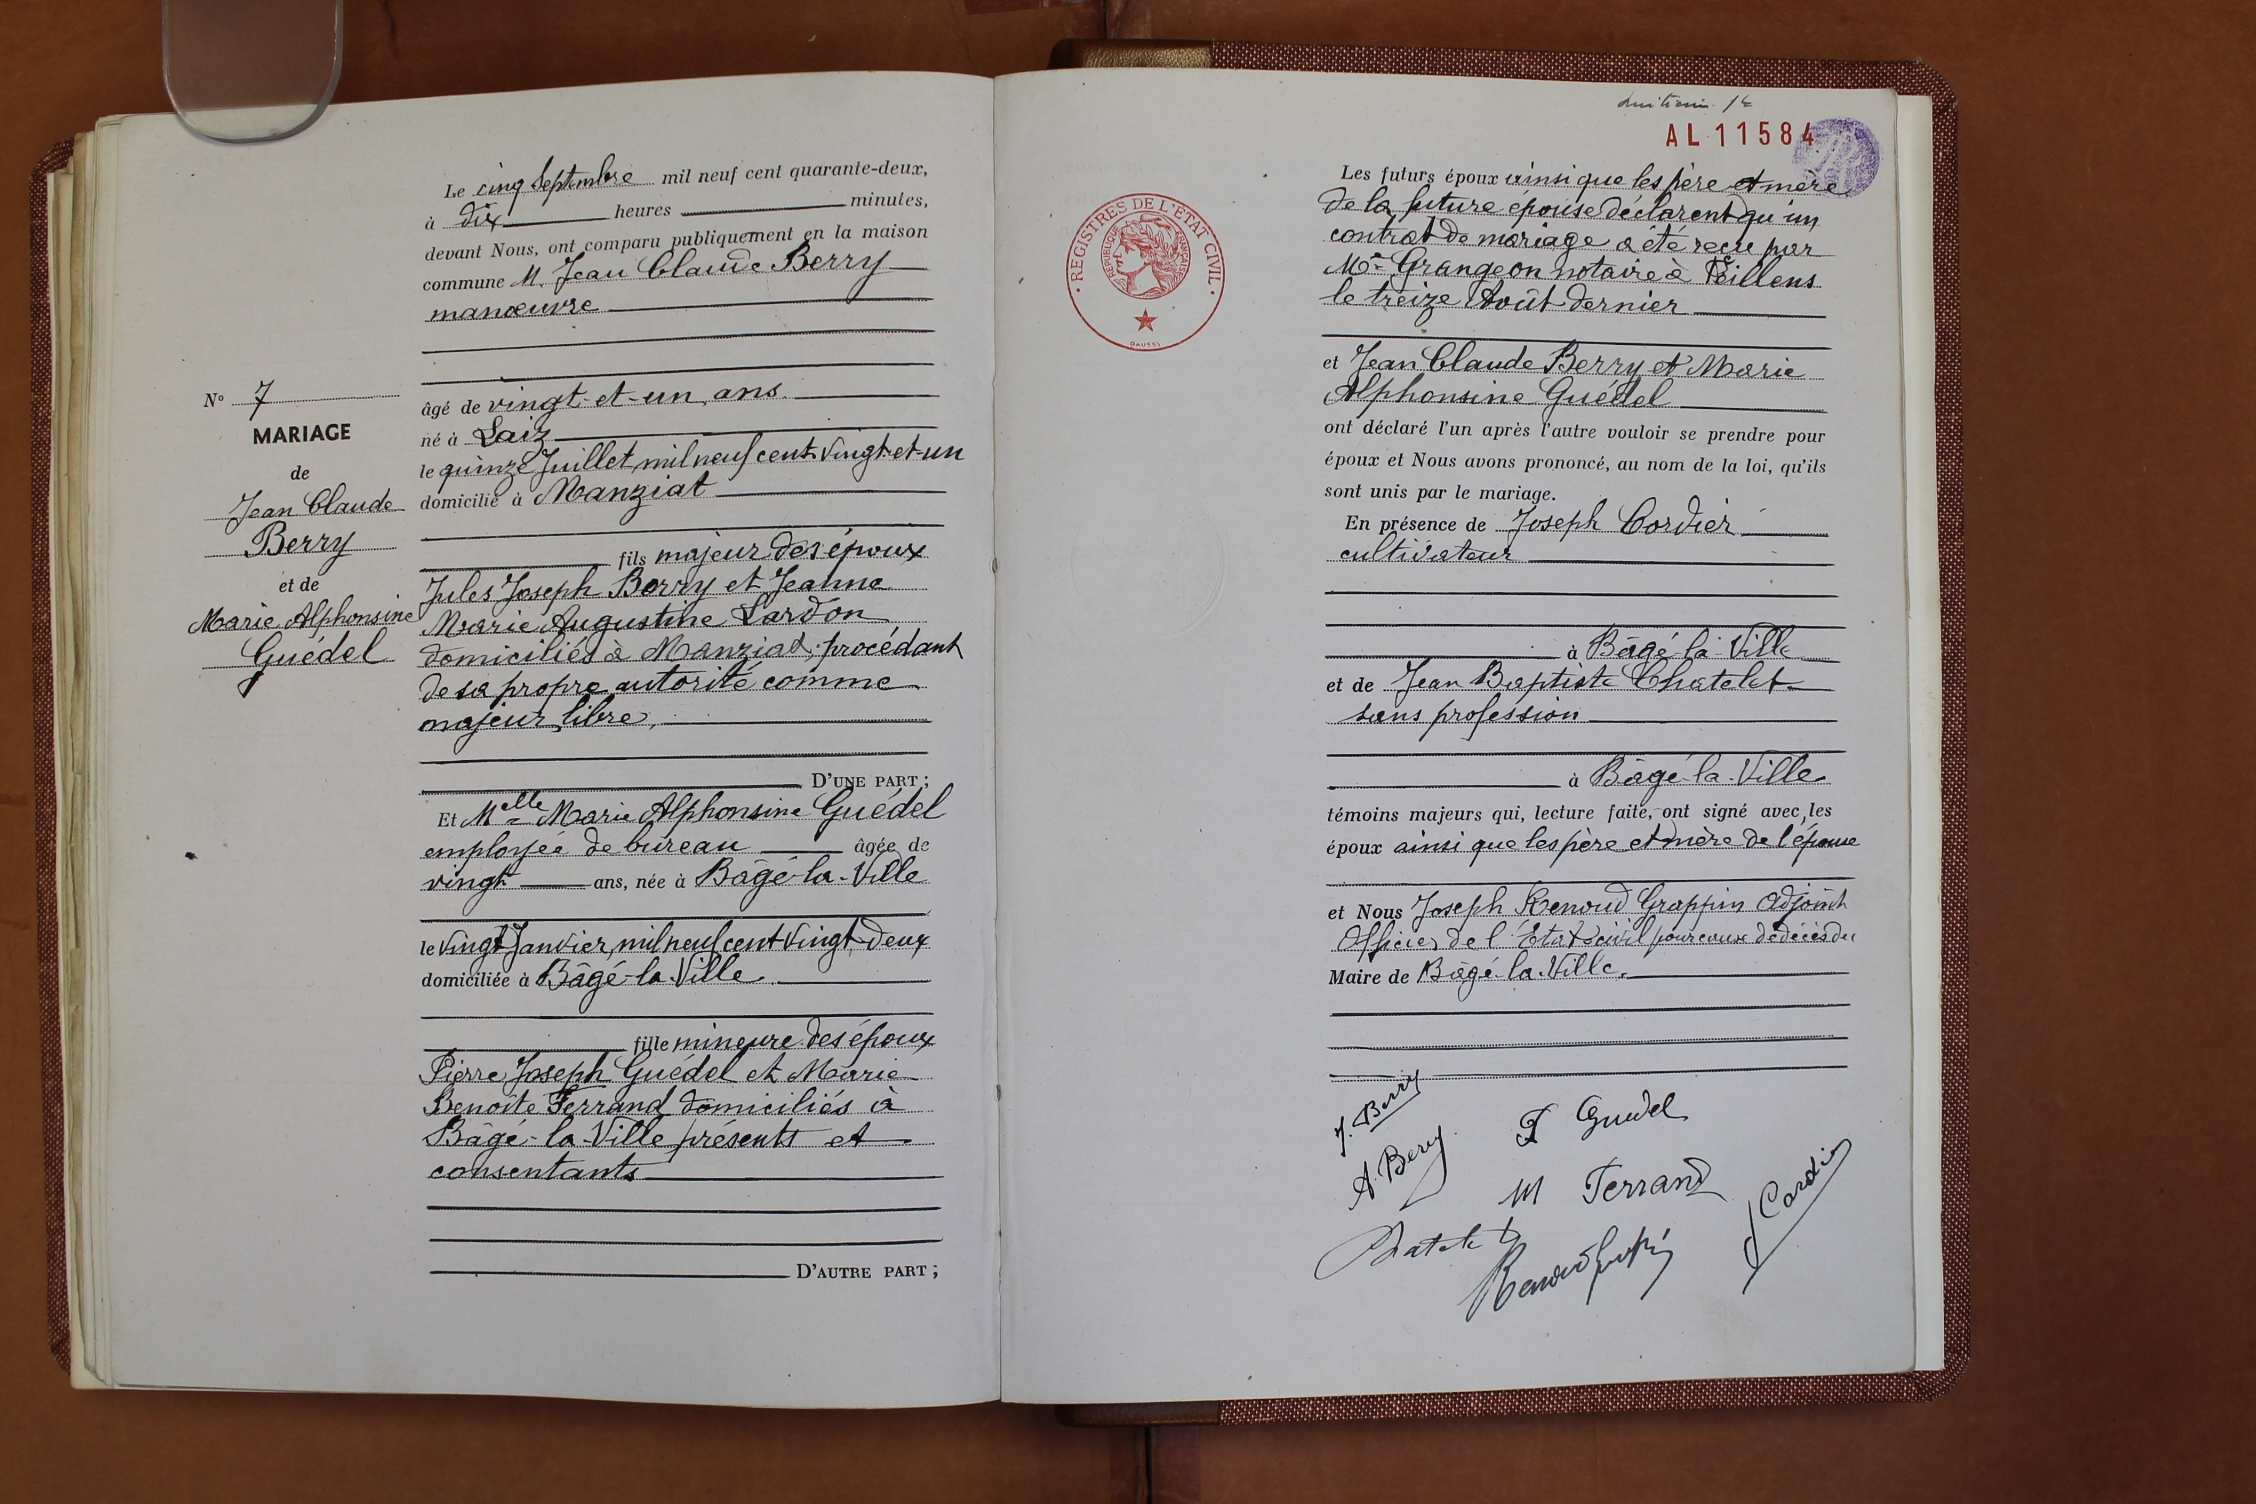 Le cinq Septembre mil neuf cent quarante-deux,
à dix heures minutes,
devant Nous, ont comparu publiquement en la maison
commune M. Jean Claude Berry
manœuvre
âgé de vingt-et-un ans
né à Laiz
le quinze Juillet mil neuf cent vingt-et-un
domicilié à Manziat
fils majeur des époux
Jules Joseph Berry et Jeanne
Marie Augustine Lardon
domiciliés à Manziat, procédant
de sa propre autorité comme
majeur libre,
D'UNE PART ;
Et Melle Marie Alphonsine Guédel
employée de bureau âgée de
vingt ans, née à Bâgé-la-Ville
le vingt Janvier mil neuf cent vingt-deux
domiciliée à Bâgé-la-Ville
fille mineure des époux
Pierre Joseph Guédel et Marie
Benoite Ferrand domiciliés à
Bâgé-la-Ville présents et
consentants
D'AUTRE PART ;
N° 7
MARIAGE
de
Jean Claude
Berry
et de
Marie Alphonsine
Guédel
AL 11584
REGISTRES DE L'ETAT CIVIL
REPUBLIQUE FRANÇAISE
Les futurs époux ainsi que les père et mère
de la future épouse déclarent qu'un
contrat de mariage a été reçu par
Me Grangeon notaire à
le treize Août dernier
et Jean Claude Berry et Marie
Alphonsine Guédel
ont déclaré l'un après l'autre vouloir se prendre pour
époux et Nous avons prononcé, au nom de la loi, qu'ils
sont unis par le mariage.
En présence de Joseph Cordier
cultivateur
à Bâgé-la-Ville
et de Jean Baptiste Chatelet
sans profession
à Bâgé-la-Ville
témoins majeurs qui, lecture faite, ont signé avec les
époux ainsi que les père et mère de l'épouse
et Nous Joseph Renoud Grappin Adjoint
Officier de l'Etat civil pour cause de décès du
Maire de Bâgé-la-Ville.
J. Berry
A. Berry
P Guédel
M Ferrand
J Cordier
Chatelet
Renoud Grappin